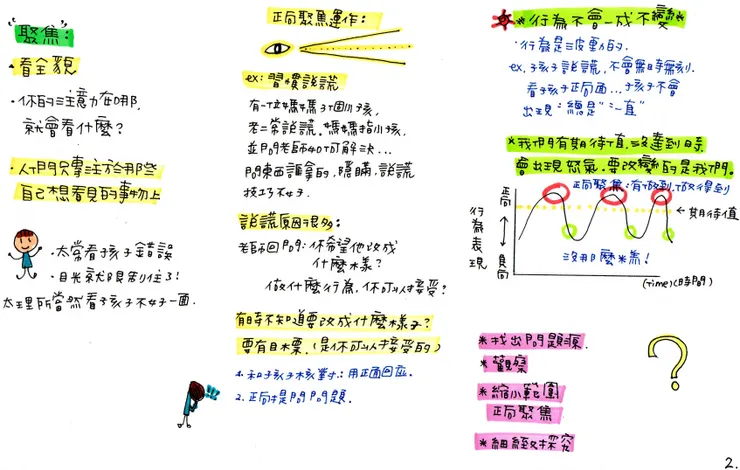 聚焦:
·看全貌
·你的注意力在哪,
就會看什麼?
·人們只專注於那些
自己想看見的事物上
·太常看孩子錯誤
·目光就限制住了!
太理所當然看孩子不好一面.
正向聚焦運作:
ex: 習慣說謊
有一位媽媽3个小孩,
老二常說謊。媽媽指小孩,
並問老師如何解決...
問東西誰拿的,隱瞞,說謊
技巧不好.
說謊原因很多:
老師回問:你希望他改成
什麼樣?
做什麼行為,你可以接受?
有時不知道要改成什麼樣子?
要有目標.(是你可以接受的)
1. 和孩子核對:用正面回应.
2. 正向提問問題.
*行為不會一成不變*
·行為是波動的.
ex, 孩子說謊,不會無時無刻.
看孩子正向面...孩子不會
出現"總是""一直"
*我們有期待值,沒達到時
會出現怒氣,要改變的是我們。
正向聚焦:有做到,做得到
正向
行為表現
負向
←期待值
沒那麼糟!
(Time)(時間)
*找出問題源.
*觀察
*縮小範圍
正向聚焦
*細緻探究
?
2.